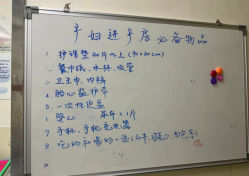 产妇进产房必备物品
1. 护理垫20片以上(90×60cm)
2. 餐巾纸、水杯、吸管
3. 卫生巾、内裤
4. 胎心监护带
5. 一次性便盆
6. 点心 尿布<1片
7. 手机、手机充电器
8. 吃的和喝的一些(